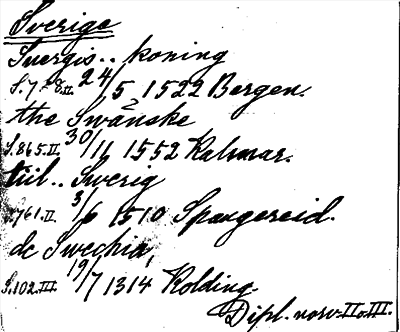 Sverige
Suergis.. koning
S.728.II. 24/5 1522 Bergen.
the Swänske
S.865.II. 30/11 1552 Kalmar.
till.. Swerig
S.761.II. 3/6 1510 Spangereid.
de Swechia,
S.102.III. 19/7 1314 Kolding.
Dipl. norv. II o. III.